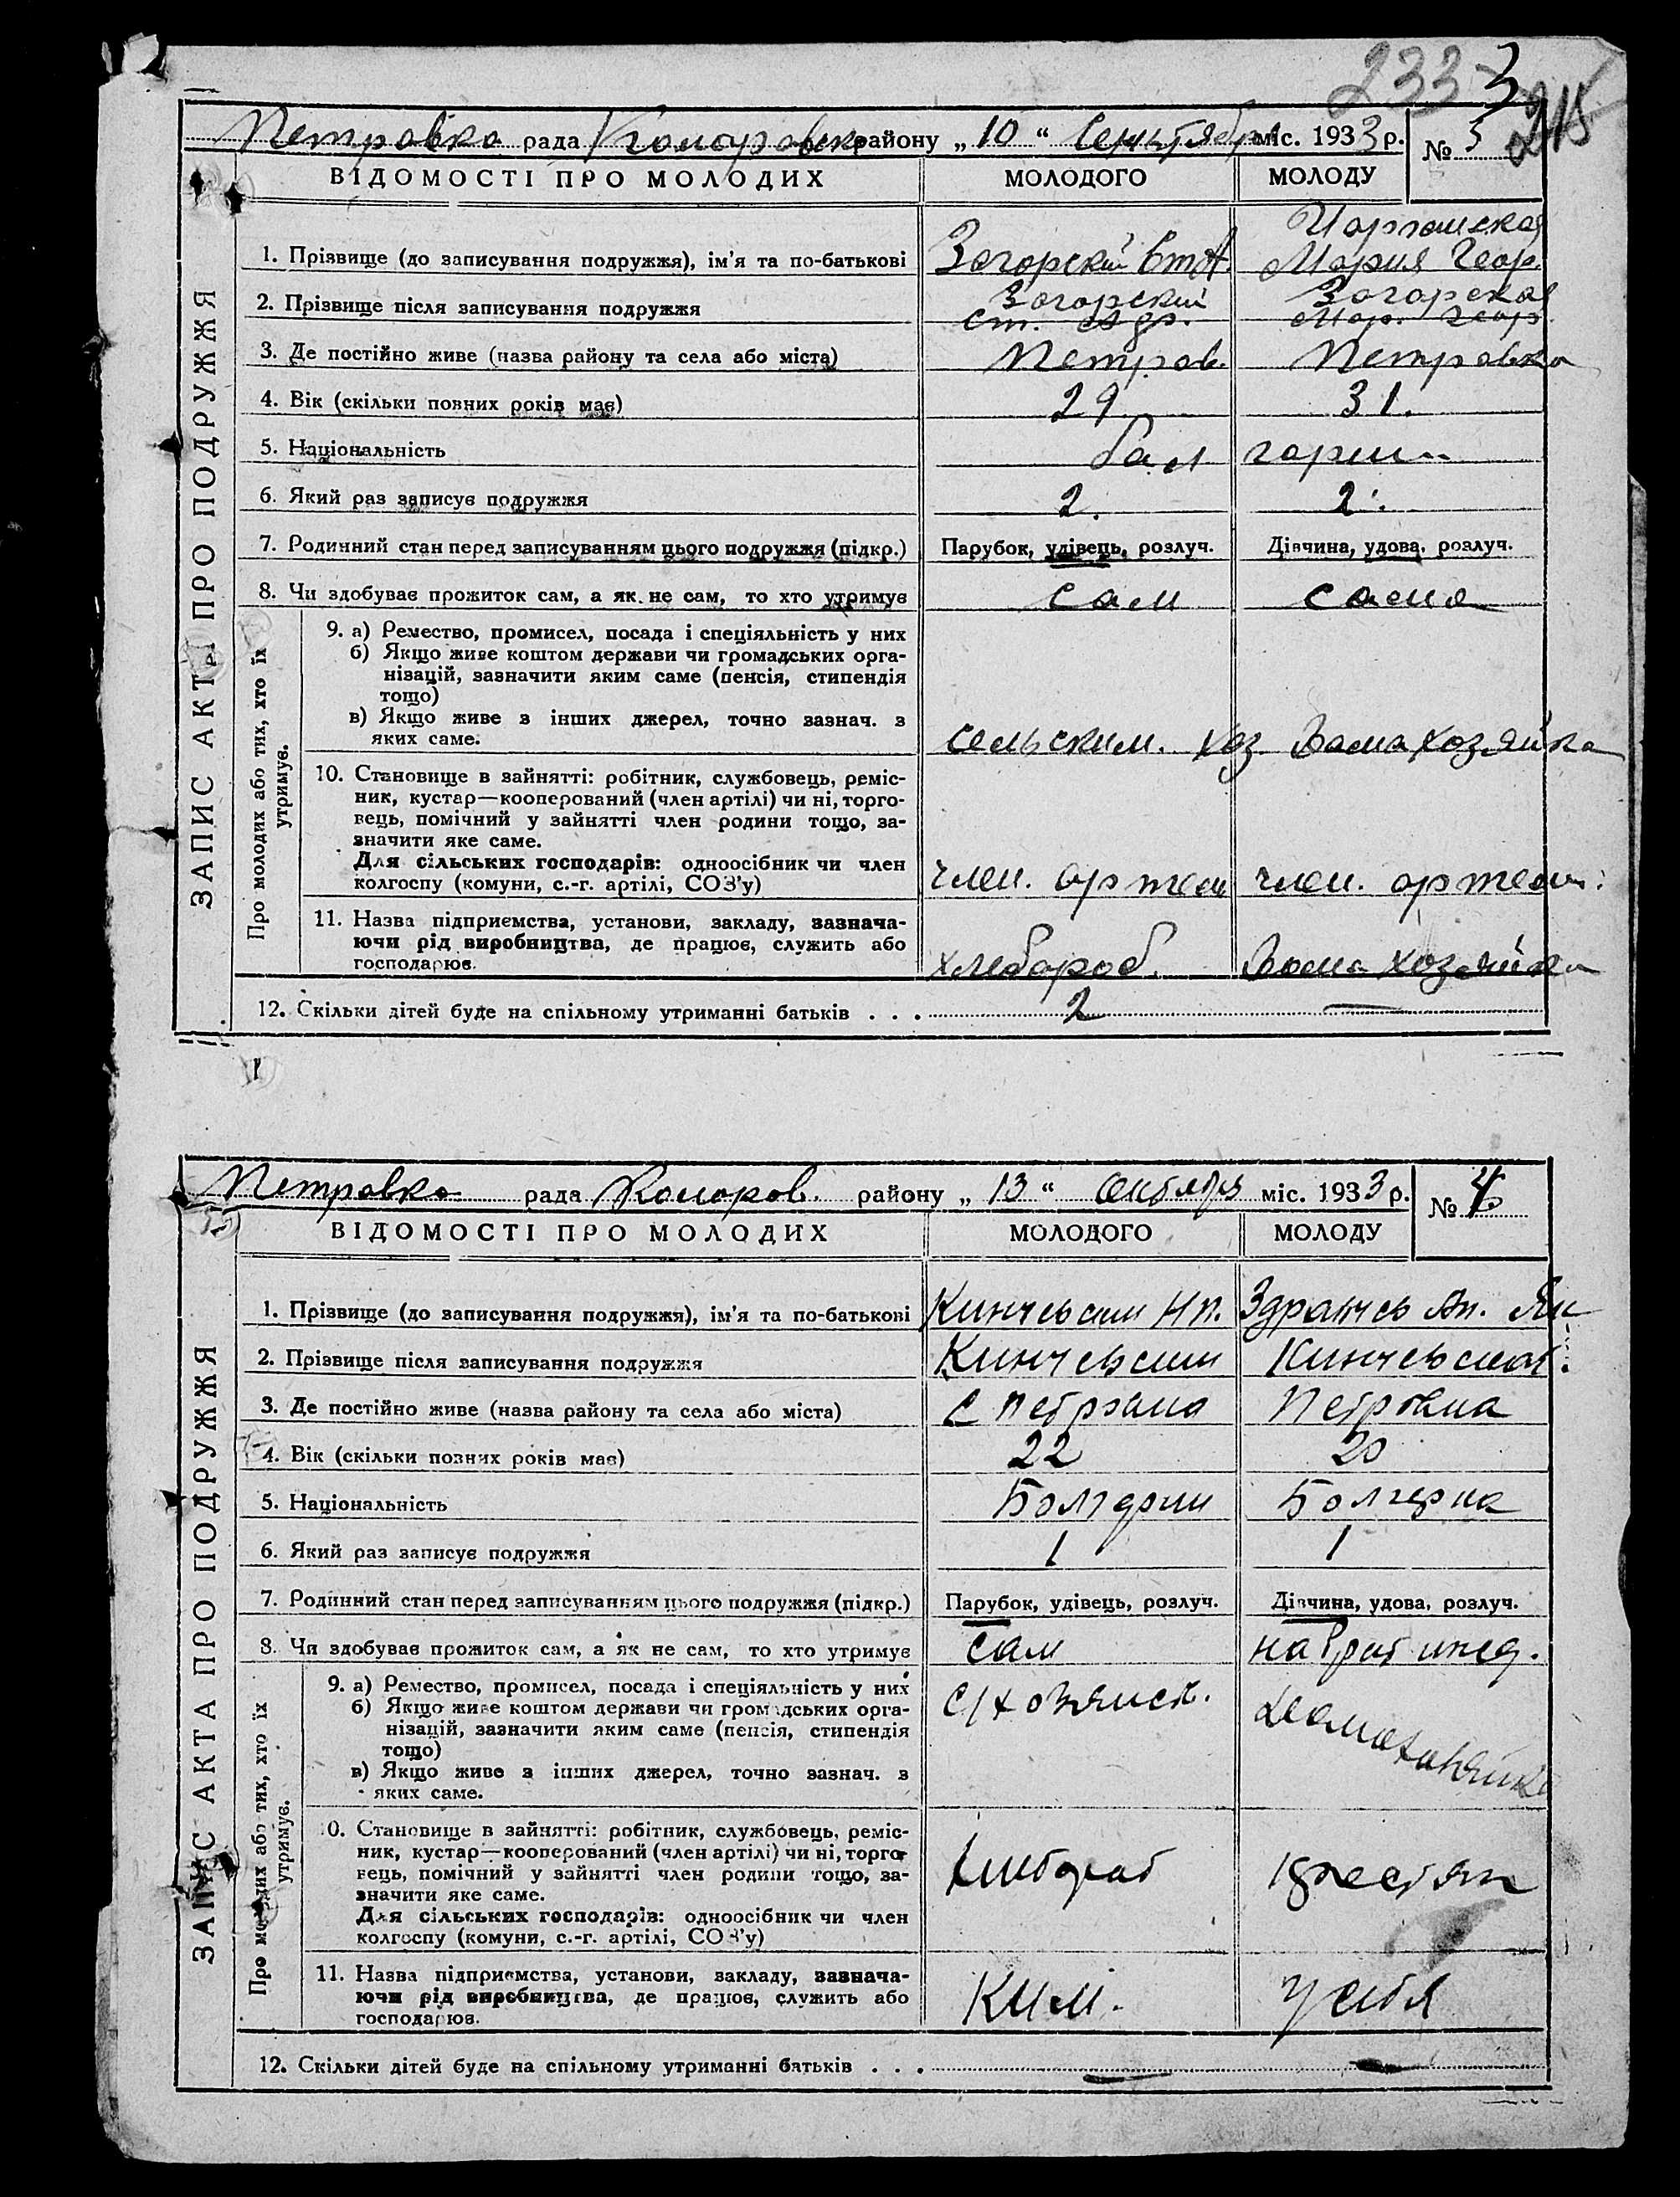 233
3
215
Петровка рада Коларовск району „ 10 “ Сентября міс. 1933 р. № 3
ВІДОМОСТІ ПРО МОЛОДИХ МОЛОДОГО МОЛОДУ
ЗАПИС АКТА ПРО ПОДРУЖЖЯ
1. Прізвище (до записування подружжя), ім'я та по-батькові Загорский Ст А. Мария Геор.
2. Прізвище після записування подружжя Загорский Ст. Адр. Загорская Мар. Геор.
3. Де постійно живе (назва району та села або міста) Петров. Петровка
4. Вік (скільки повних років має) 29 31.
5. Національність бал гарин
6. Який раз записує подружжя 2. 2.
7. Родинний стан перед записуванням цього подружжя (підкр.) Парубок, удівець, розлуч. Дівчина, удова, розлуч.
8. Чи здобуває прожиток сам, а як не сам, то хто утримує сам сама
Про молодих або тих, хто їх утримує.
9. а) Ремество, промисел, посада і спеціяльність у них
б) Якщо живе коштом держави чи громадських орга-
нізацій, зазначити яким саме (пенсія, стипендія
тощо)
в) Якщо живе з інших джерел, точно зазнач. з
яких саме. сельским. хоз. Дамахозяйка
10. Становище в зайнятті: робітник, службовець, реміс-
ник, кустар—кооперований (член артілі) чи ні, торго-
вець, помічний у зайнятті член родини тощо, за-
значити яке саме.
Для сільських господарів: одноосібник чи член
колгоспу (комуни, с.-г. артілі, СОЗ'у) член. артели член. артели
11. Назва підприємства, установи, закладу, зазнача-
ючи рід виробництва, де працює, служить або
господарює. хлебороб. Дама хозяйка
12. Скільки дітей буде на спільному утриманні батьків . . . 2 —
Петровка рада Коларов. району „ 13 “ Октября міс. 1933 р. № 4
ВІДОМОСТІ ПРО МОЛОДИХ МОЛОДОГО МОЛОДУ
ЗАПИС АКТА ПРО ПОДРУЖЖЯ
1. Прізвище (до записування подружжя), ім'я та по-батькові Кинчевский Н П.
2. Прізвище після записування подружжя Кинчевский Кинчевская
3. Де постійно живе (назва району та села або міста) с Петровка Петровка
4. Вік (скільки повних років має) 22 20
5. Національність Болгарин Болгарка
6. Який раз записує подружжя 1 1
7. Родинний стан перед записуванням цього подружжя (підкр.) Парубок, удівець, розлуч. Дівчина, удова, розлуч.
8. Чи здобуває прожиток сам, а як не сам, то хто утримує сам
Про молодих або тих, хто їх утримує.
9. а) Ремество, промисел, посада і спеціяльність у них
б) Якщо живе коштом держави чи громадських орга-
нізацій, зазначити яким саме (пенсія, стипендія
тощо)
в) Якщо живе з інших джерел, точно зазнач. з
яких саме. Домахозяйка
10. Становище в зайнятті: робітник, службовець, реміс-
ник, кустар—кооперований (член артілі) чи ні, торго-
вець, помічний у зайнятті член родини тощо, за-
значити яке саме.
Для сільських господарів: одноосібник чи член
колгоспу (комуни, с.-г. артілі, СОЗ'у) хлебораб крестян
11. Назва підприємства, установи, закладу, зазнача-
ючи рід виробництва, де працює, служить або
господарює. КИМ. У себя
12. Скільки дітей буде на спільному утриманні батьків . . . — —